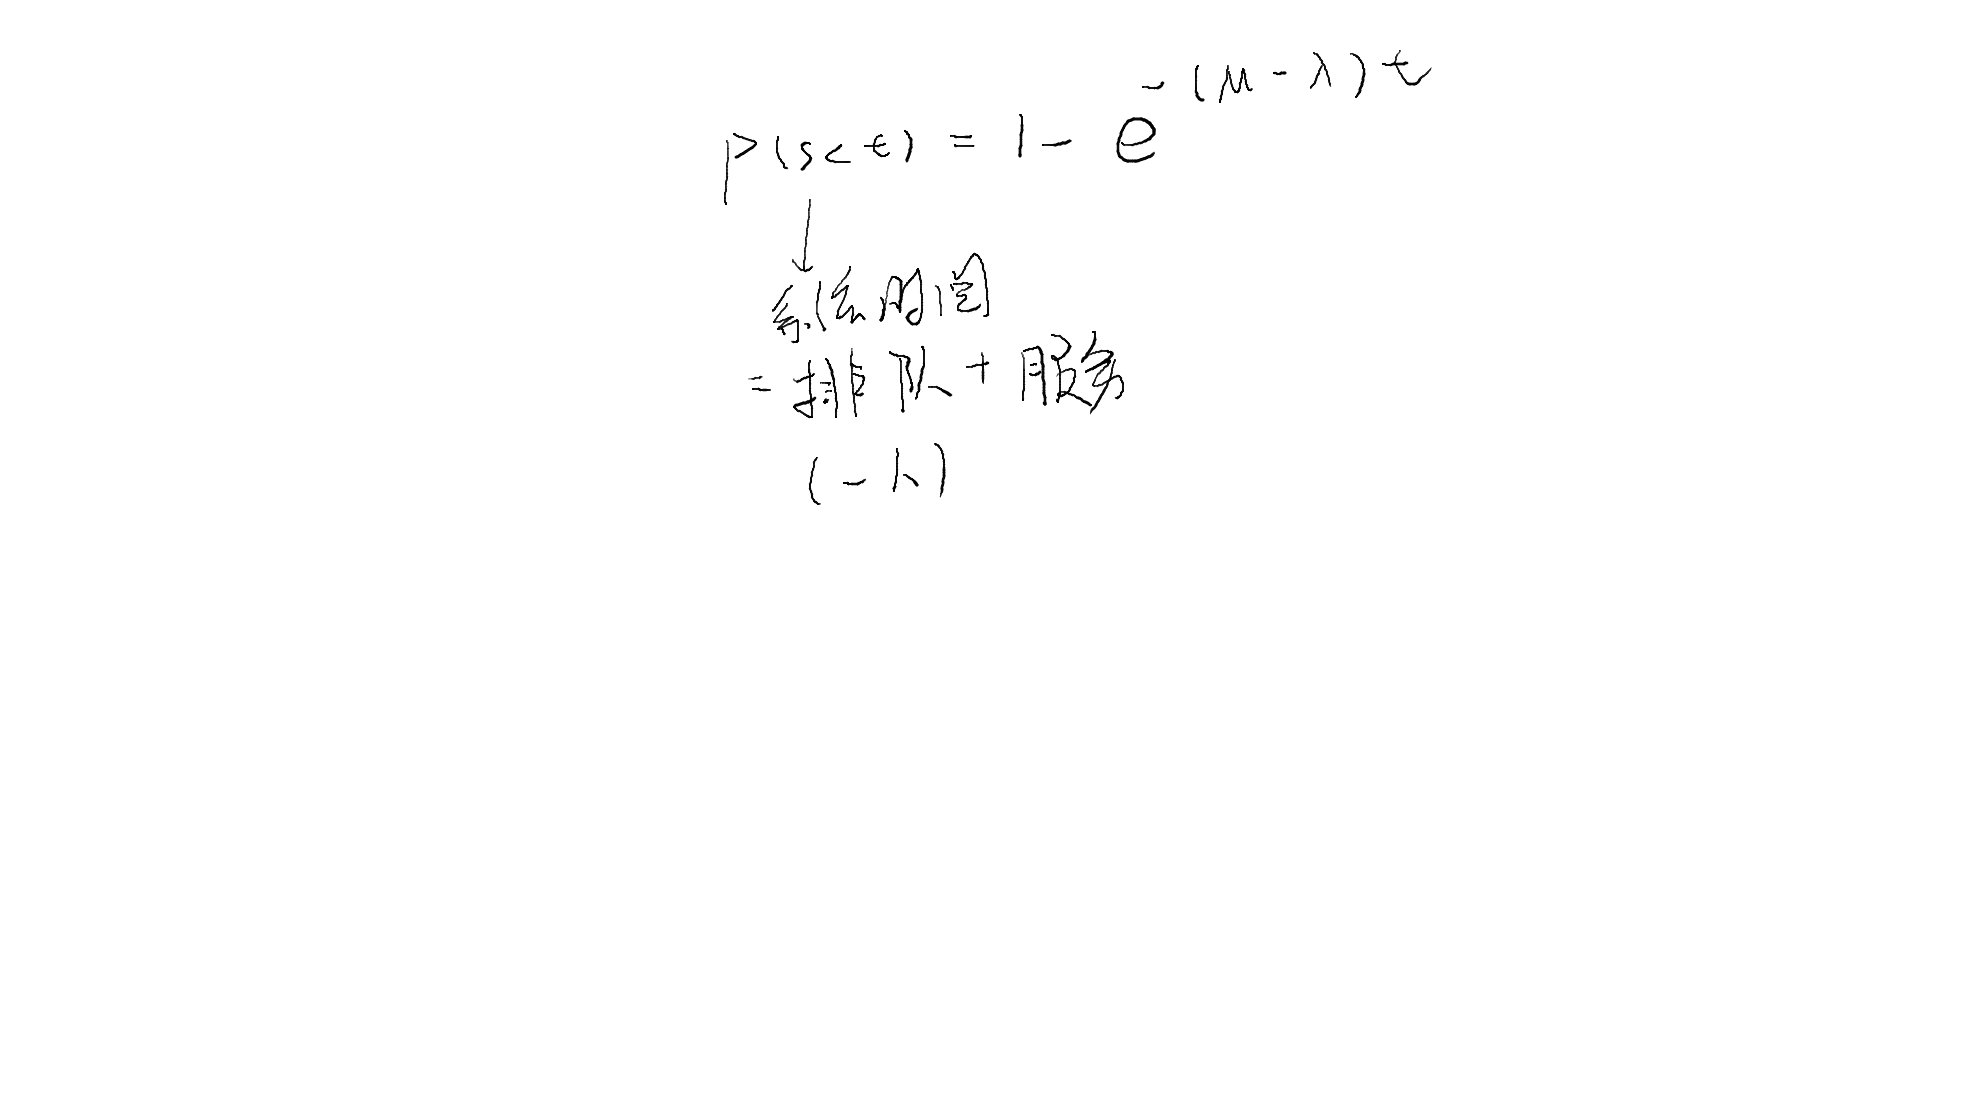 P(s<t) = 1 - e^{-(μ-λ)t}
↓
系统时间
= 排队 + 服务
(一人)